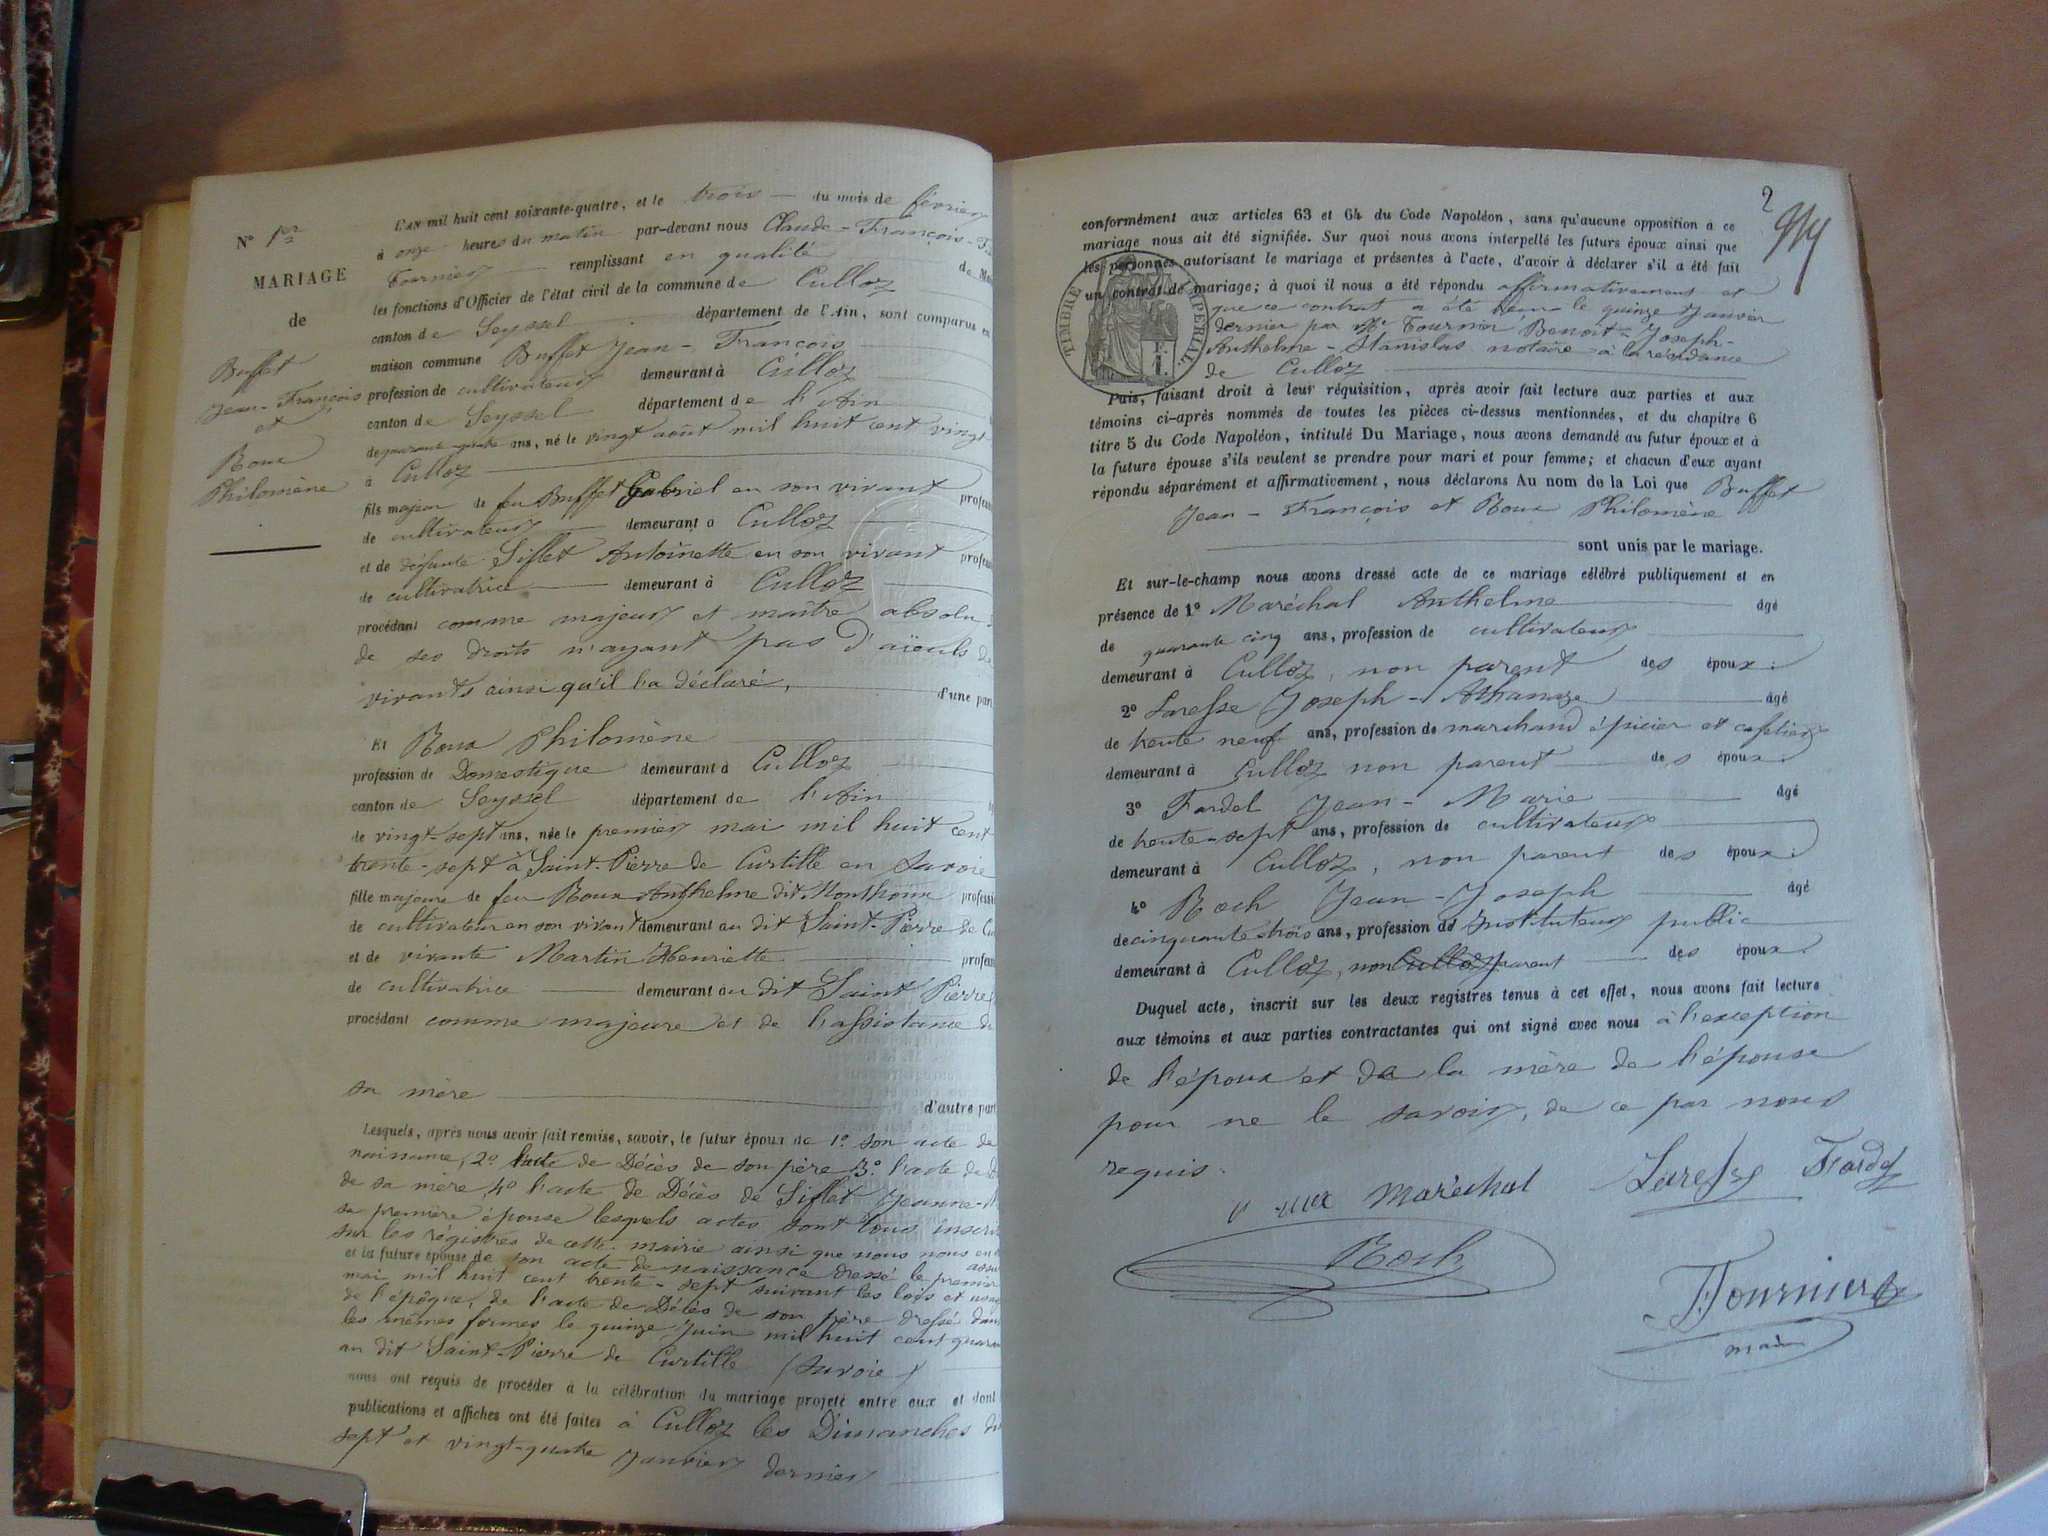 N° 1er
MARIAGE
de
Buffet
Jean-François
et
Roux
Philomène
L'AN mil huit cent soixante-quatre, et le trois du mois de février
à onze heures du matin par-devant nous Claude-François-
Fournier remplissant en qualité de
les fonctions d'Officier de l'état civil de la commune de Culloz
canton de Seyssel département de l'Ain, sont comparus en
maison commune Buffet Jean-François
profession de cultivateur demeurant à Culloz
canton de Seyssel département de l'Ain
de quarante-quatre ans, né le vingt août mil huit cent vingt
à Culloz
fils majeur de feu Buffet Gabriel en son vivant
de cultivateur demeurant à Culloz
et de défunte Siflet Antoinette en son vivant
de cultivatrice demeurant à Culloz
procédant comme majeur et maître absolu
de ses droits n'ayant pas d'aïeuls
vivants ainsi qu'il l'a déclaré, d'une part
Et Roux Philomène
profession de Domestique demeurant à Culloz
canton de Seyssel département de l'Ain
de vingt-sept ans, née le premier mai mil huit cent
trente-sept à Saint-Pierre de Curtille en Savoie
fille majeure de feu Roux Anthelme dit
de cultivateur en son vivant demeurant au dit Saint-Pierre de
et de vivante Martin Henriette
de cultivatrice demeurant au dit Saint Pierre
procédant comme majeure et de l'assistance de
sa mère d'autre part
Lesquels, après nous avoir fait remise, savoir, le futur époux de 1° son acte de
naissance, 2° l'acte de Décès de son père 3° l'acte de
de sa mère 4° l'acte de Décès de Siflet Jeanne-
sa première épouse lesquels actes sont tous
sur les régistres de cette mairie ainsi que nous nous en
et la future épouse de son acte de naissance dressé le premier
mai mil huit cent trente-sept suivant les lois et
de l'époque, de l'acte de Décès de son père dressé dans
les mêmes formes le quinze Juin mil huit cent
au dit Saint-Pierre de Curtille (Savoie)
nous ont requis de procéder à la célébration du mariage projeté entre eux et dont
publications et affiches ont été faites à Culloz les Dimanches
sept et vingt-quatre Janvier dernier
2
conformément aux articles 63 et 64 du Code Napoléon, sans qu'aucune opposition à ce
mariage nous ait été signifiée. Sur quoi nous avons interpellé les futurs époux ainsi que
les personnes autorisant le mariage et présentes à l'acte, d'avoir à déclarer s'il a été fait
un contrat de mariage; à quoi il nous a été répondu affirmativement et
que ce contrat a été le quinze Janvier
dernier par Me Fournier Benoit-Joseph-
Anthelme-Stanislas notaire à la résidance
de Culloz
TIMBRE IMPERIAL
F.
1.
Puis, faisant droit à leur réquisition, après avoir fait lecture aux parties et aux
témoins ci-après nommés de toutes les pièces ci-dessus mentionnées, et du chapitre 6
titre 5 du Code Napoléon, intitulé Du Mariage, nous avons demandé au futur époux et à
la future épouse s'ils veulent se prendre pour mari et pour femme; et chacun d'eux ayant
répondu séparément et affirmativement, nous déclarons Au nom de la Loi que Buffet
Jean-François et Roux Philomène
sont unis par le mariage.
Et sur-le-champ nous avons dressé acte de ce mariage célébré publiquement et en
présence de 1° Maréchal Anthelme âgé
de quarante cinq ans, profession de cultivateur
demeurant à Culloz, non parent des époux.
2° Laresse Joseph-Athanaze âgé
de trente neuf ans, profession de marchand épicier et cafetier
demeurant à Culloz non parent des époux.
3° Fardel Jean-Marie âgé
de trente-sept ans, profession de cultivateur
demeurant à Culloz, non parent des époux.
4° Roch Jean-Joseph âgé
de cinquante trois ans, profession de Instituteur public
demeurant à Culloz, non Culloz parent des époux.
Duquel acte, inscrit sur les deux registres tenus à cet effet, nous avons fait lecture
aux témoins et aux parties contractantes qui ont signé avec nous à l'exception
de l'époux et de la mère de l'épouse
pour ne le savoir, de ce par nous
requis.
Maréchal Laresse Fardel
Roch
Fournier
maire